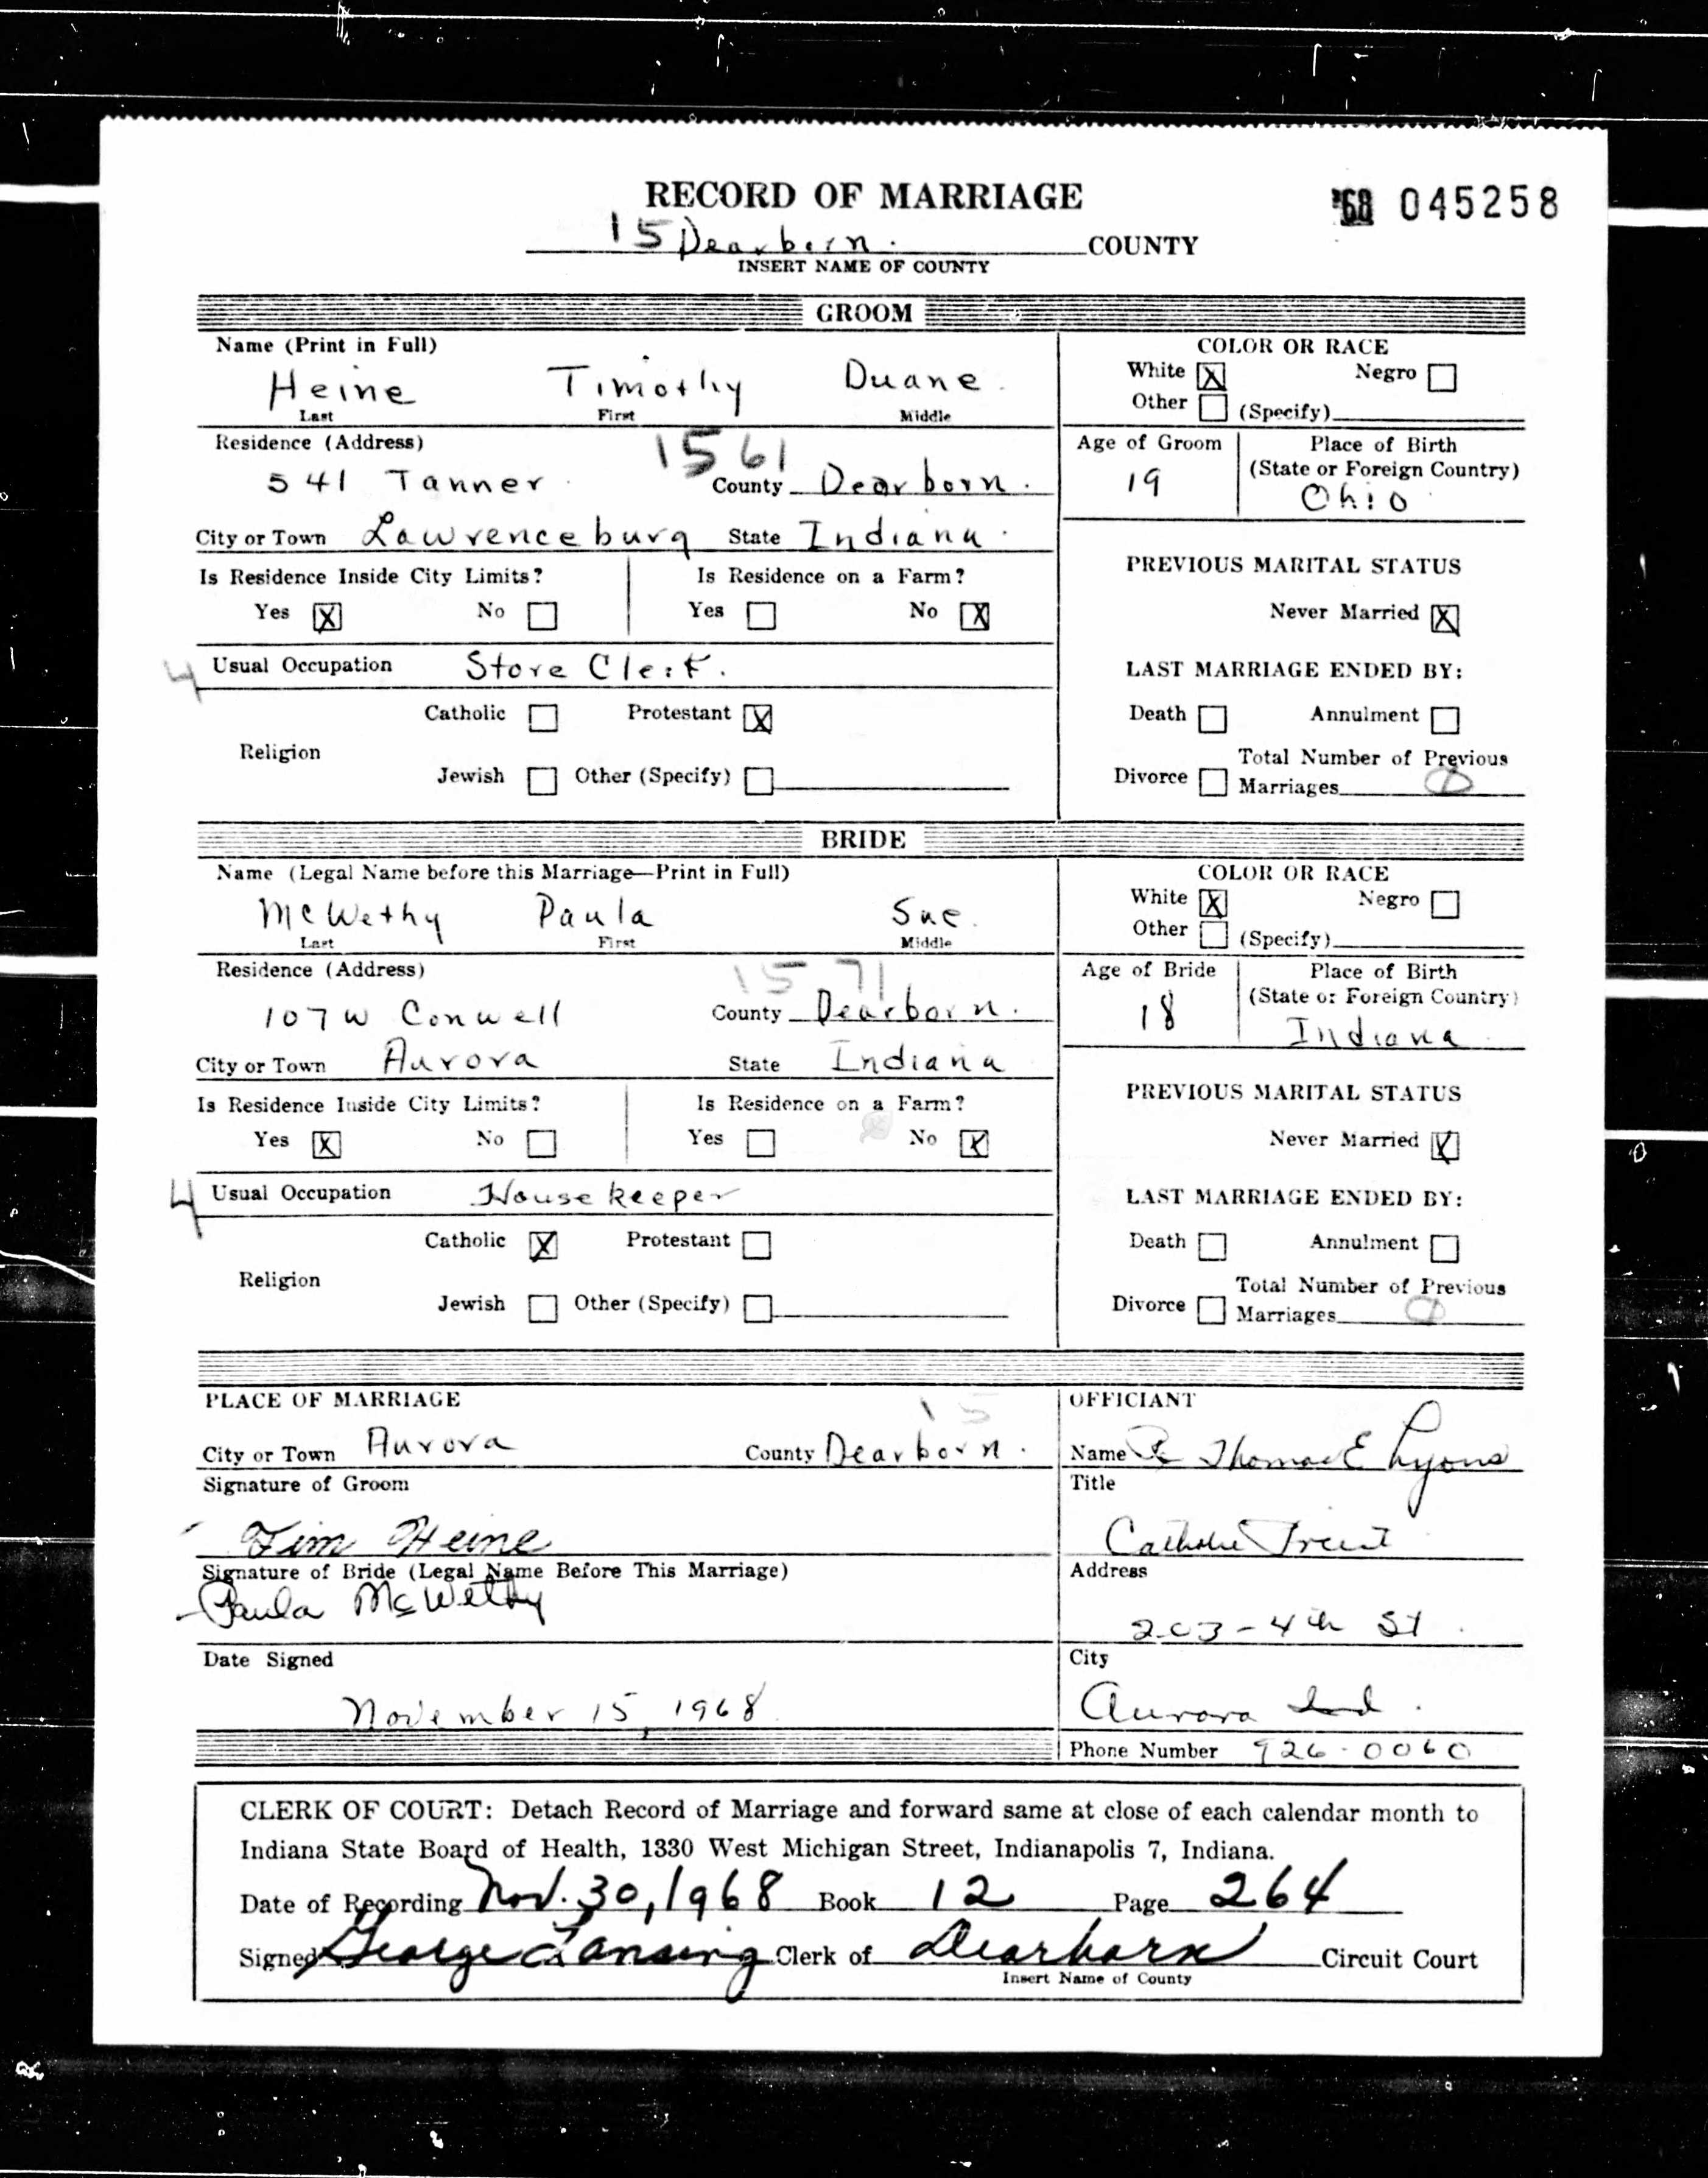 RECORD OF MARRIAGE
'68 045258
15 Dearborn. COUNTY
INSERT NAME OF COUNTY
GROOM
Name (Print in Full)
Heine Timothy Duane.
Last First Middle
COLOR OR RACE
White [X] Negro [ ]
Other [ ] (Specify)
Residence (Address) 1561
541 Tanner County Dearborn.
City or Town Lawrenceburg State Indiana.
Age of Groom
19
Place of Birth
(State or Foreign Country)
Ohio
Is Residence Inside City Limits? Is Residence on a Farm?
Yes [X] No [ ] Yes [ ] No [X]
PREVIOUS MARITAL STATUS
Never Married [X]
4 Usual Occupation Store Clerk.
LAST MARRIAGE ENDED BY:
Catholic [ ] Protestant [X]
Religion
Jewish [ ] Other (Specify) [ ]
Death [ ] Annulment [ ]
Divorce [ ] Total Number of Previous
Marriages 0
BRIDE
Name (Legal Name before this Marriage—Print in Full)
McWethy Paula Sue.
Last First Middle
COLOR OR RACE
White [X] Negro [ ]
Other [ ] (Specify)
Residence (Address) 1571
107 W Conwell County Dearborn.
City or Town Aurora State Indiana
Age of Bride
18
Place of Birth
(State or Foreign Country)
Indiana
Is Residence Inside City Limits? Is Residence on a Farm?
Yes [X] No [ ] Yes [ ] No [X]
PREVIOUS MARITAL STATUS
Never Married [X]
4 Usual Occupation Housekeeper
LAST MARRIAGE ENDED BY:
Catholic [X] Protestant [ ]
Religion
Jewish [ ] Other (Specify) [ ]
Death [ ] Annulment [ ]
Divorce [ ] Total Number of Previous
Marriages 0
PLACE OF MARRIAGE 15
City or Town Aurora County Dearborn.
Signature of Groom
Tim Heine
Signature of Bride (Legal Name Before This Marriage)
Paula McWethy
Date Signed
November 15, 1968
OFFICIANT
Name Thomas E Lyons
Title
Catholic Priest
Address
203-4th St.
City
Aurora Ind.
Phone Number 926-0060
CLERK OF COURT: Detach Record of Marriage and forward same at close of each calendar month to
Indiana State Board of Health, 1330 West Michigan Street, Indianapolis 7, Indiana.
Date of Recording Nov. 30, 1968 Book 12 Page 264
Signed George Lansing Clerk of Dearborn Circuit Court
Insert Name of County